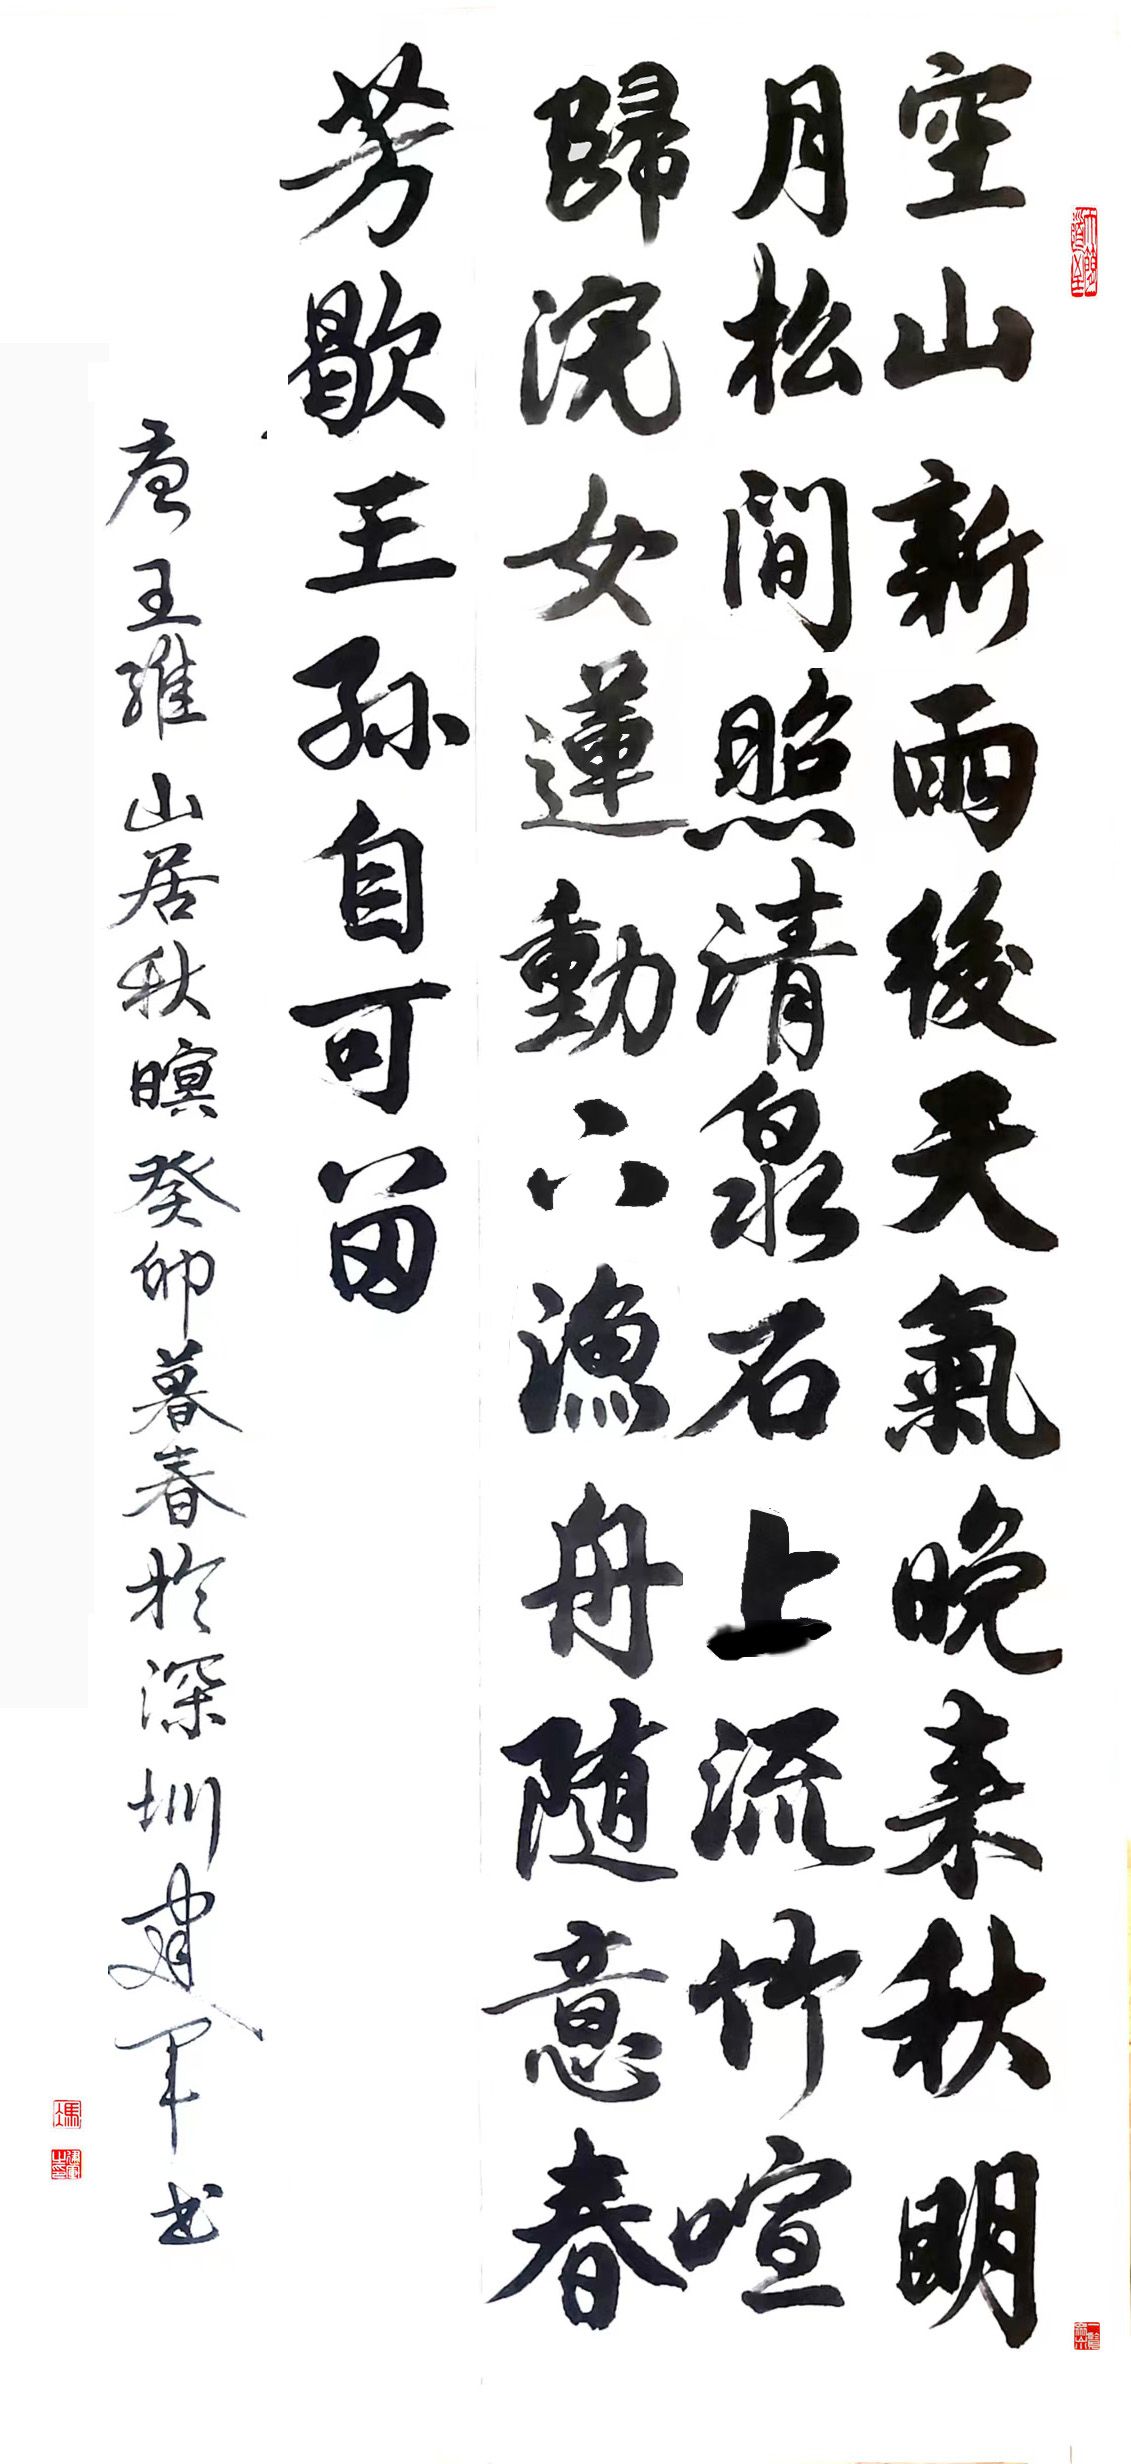 空山新雨後天氣晚来秋明
月松間照清泉石上流竹喧
歸浣女蓮動下漁舟随意春
芳歇王孙自可留
唐王維山居秋暝癸卯暮春於深圳建军书